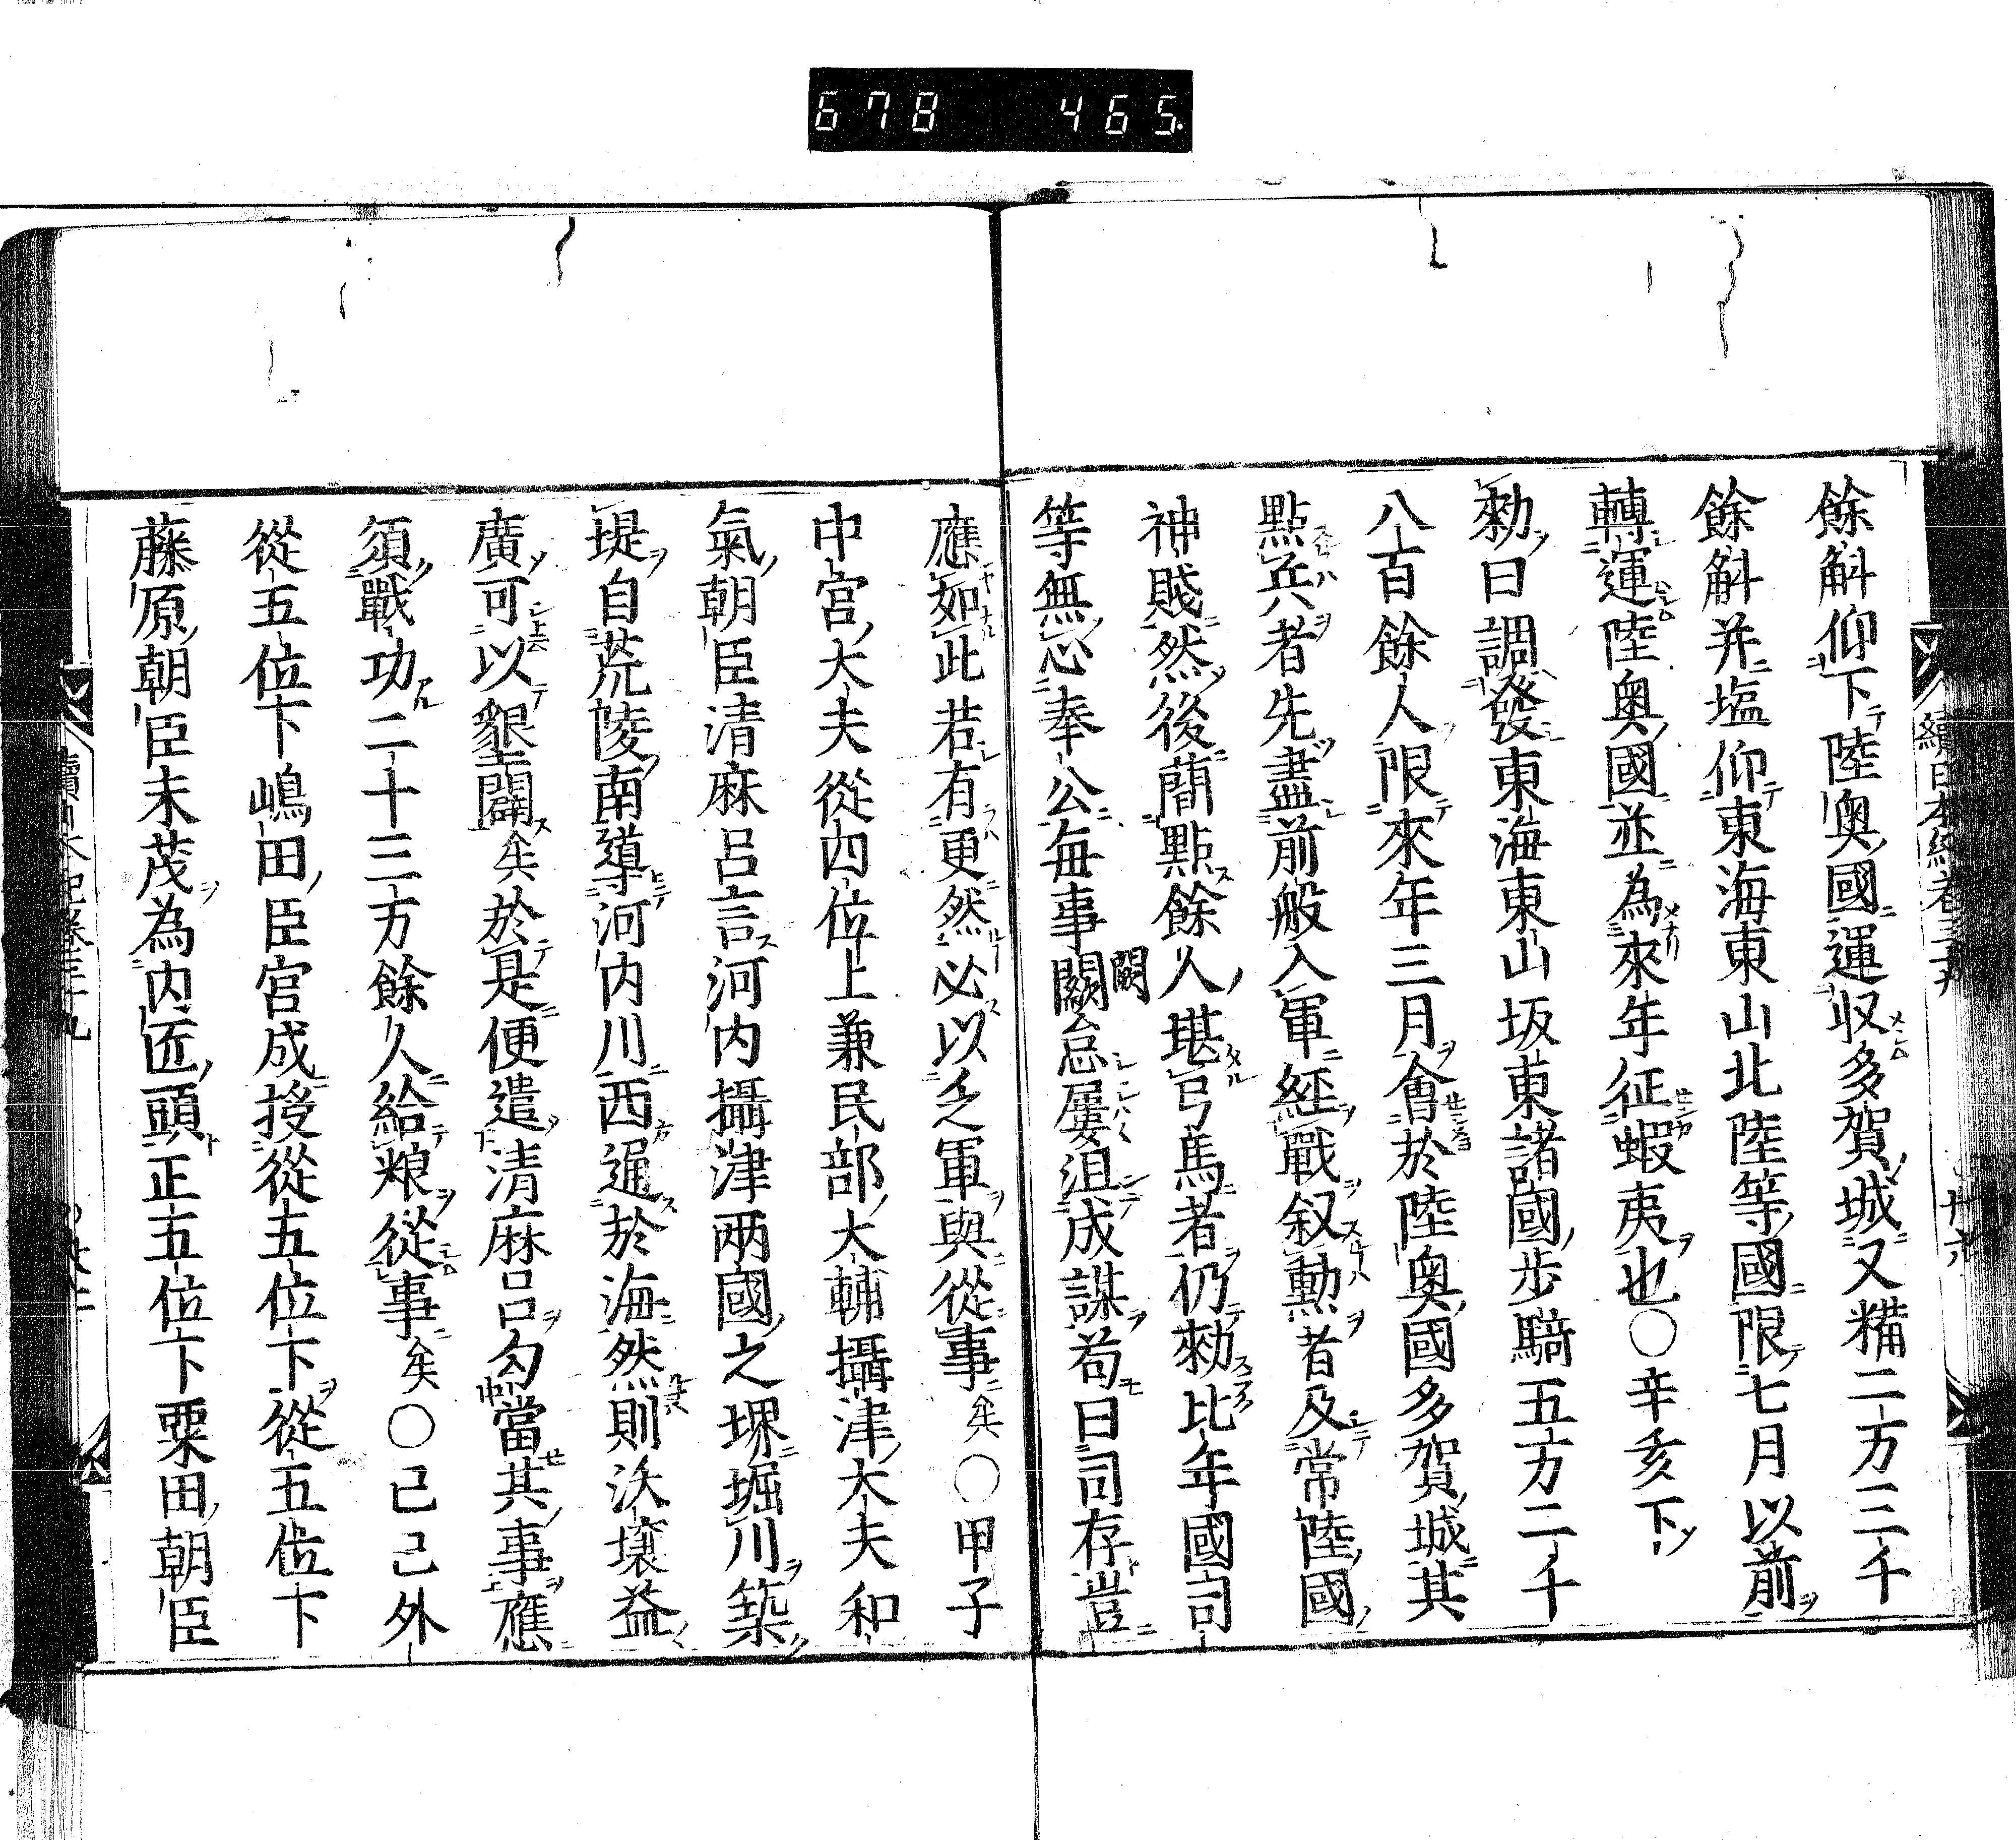 678 465
餘斛仰下陸奧國運収多賀城又糒二万三千
餘斛并塩仰東海東山北陸等國限七月以前
轉運陸奧國並為來年征蝦夷也〇辛亥下
勑曰調發東海東山坂東諸國步騎五万二千
八百餘人限來年三月會於陸奧國多賀城其
點兵者先盡前般入軍經戰叙勳者及常陸國
神賤然後蕳點餘人堪弓馬者仍勑比年國司
等無心奉公每事闕怠屢沮成謀苟曰司存豈
應如此若有更然必以乏軍與從事矣〇甲子
中宮大夫從四位上兼民部大輔攝津大夫和
氣朝臣清麻呂言河内攝津兩國之堺堀川築
堤自荒陵南導河内川西通於海然則沃壤益
廣可以墾闢矣於是便遣清麻呂勾當其事應
須戰功二十三万餘人給粮從事矣〇己巳外
從五位下嶋田臣宮成授從五位下從五位下
藤原朝臣末茂為内匠頭正五位下粟田朝臣